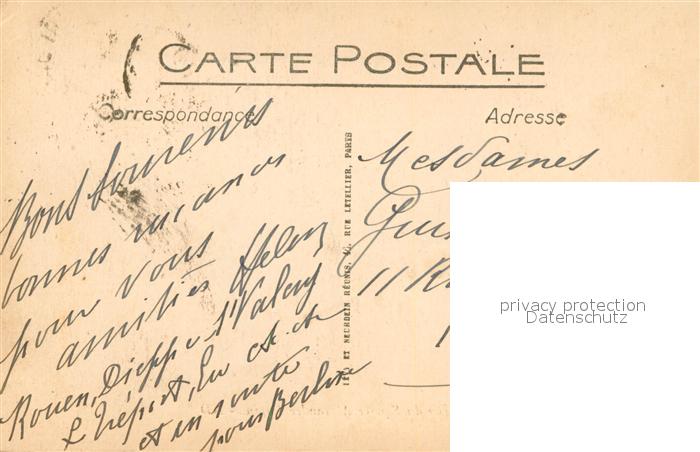 CARTE POSTALE
Correspondance
Adresse
Bons souvenirs
bonnes vacances
pour vous
amitiés Helen
Rouen, Dieppe St Valery
Le Tréport, Eu etc etc
et en route
pour Berlin
LEVY ET NEURDEIN RÉUNIS, 44, RUE LETELLIER, PARIS
Mesdames
11
privacy protection
Datenschutz